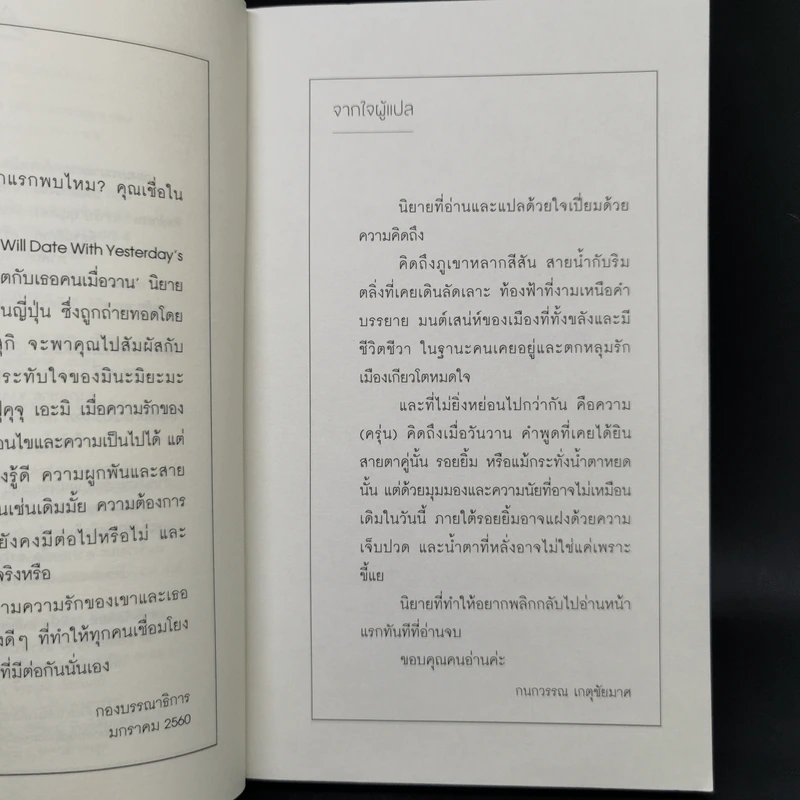 กแรกพบไหม? คุณเชื่อใน
Will Date With Yesterday's
ตกับเธอคนเมื่อวาน' นิยาย
นญี่ปุ่น ซึ่งถูกถ่ายทอดโดย
ุกิ จะพาคุณไปสัมผัสกับ
ระทับใจของมินะมิยะมะ
คุจุ เอะมิ เมื่อความรักของ
อนไขและความเป็นไปได้ แต่
งรู้ดี ความผูกพันและสาย
นเช่นเดิมมั้ย ความต้องการ
ยังคงมีต่อไปหรือไม่ และ
จริงหรือ
ามความรักของเขาและเธอ
งดีๆ ที่ทำให้ทุกคนเชื่อมโยง
ที่มีต่อกันนั่นเอง
กองบรรณาธิการ
มกราคม 2560
จากใจผู้แปล
นิยายที่อ่านและแปลด้วยใจเปี่ยมด้วย
ความคิดถึง
คิดถึงภูเขาหลากสีสัน สายน้ำกับริม
ตลิ่งที่เคยเดินลัดเลาะ ท้องฟ้าที่งามเหนือคำ
บรรยาย มนต์เสน่ห์ของเมืองที่ทั้งขลังและมี
ชีวิตชีวา ในฐานะคนเคยอยู่และตกหลุมรัก
เมืองเกียวโตหมดใจ
และที่ไม่ยิ่งหย่อนไปกว่ากัน คือความ
(ครุ่น) คิดถึงเมื่อวันวาน คำพูดที่เคยได้ยิน
สายตาคู่นั้น รอยยิ้ม หรือแม้กระทั่งน้ำตาหยด
นั้น แต่ด้วยมุมมองและความนัยที่อาจไม่เหมือน
เดิมในวันนี้ ภายใต้รอยยิ้มอาจแฝงด้วยความ
เจ็บปวด และน้ำตาที่หลั่งอาจไม่ใช่แค่เพราะ
ขี้แย
นิยายที่ทำให้อยากพลิกกลับไปอ่านหน้า
แรกทันทีที่อ่านจบ
ขอบคุณคนอ่านค่ะ
กนกวรรณ เกตุชัยมาศ